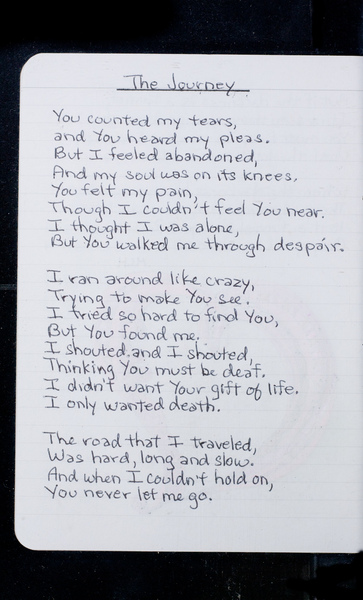 The Journey
You counted my tears,
and You heard my pleas.
But I feeled abandoned,
And my soul was on its knees.
You felt my pain,
Though I couldn't feel You near.
I thought I was alone,
But You walked me through despair.
I ran around like crazy,
Trying to make You see.
I tried so hard to find You,
But You found me.
I shouted and I shouted,
Thinking You must be deaf.
I didn't want Your gift of life.
I only wanted death.
The road that I traveled,
Was hard, long and slow.
And when I couldn't hold on,
You never let me go.